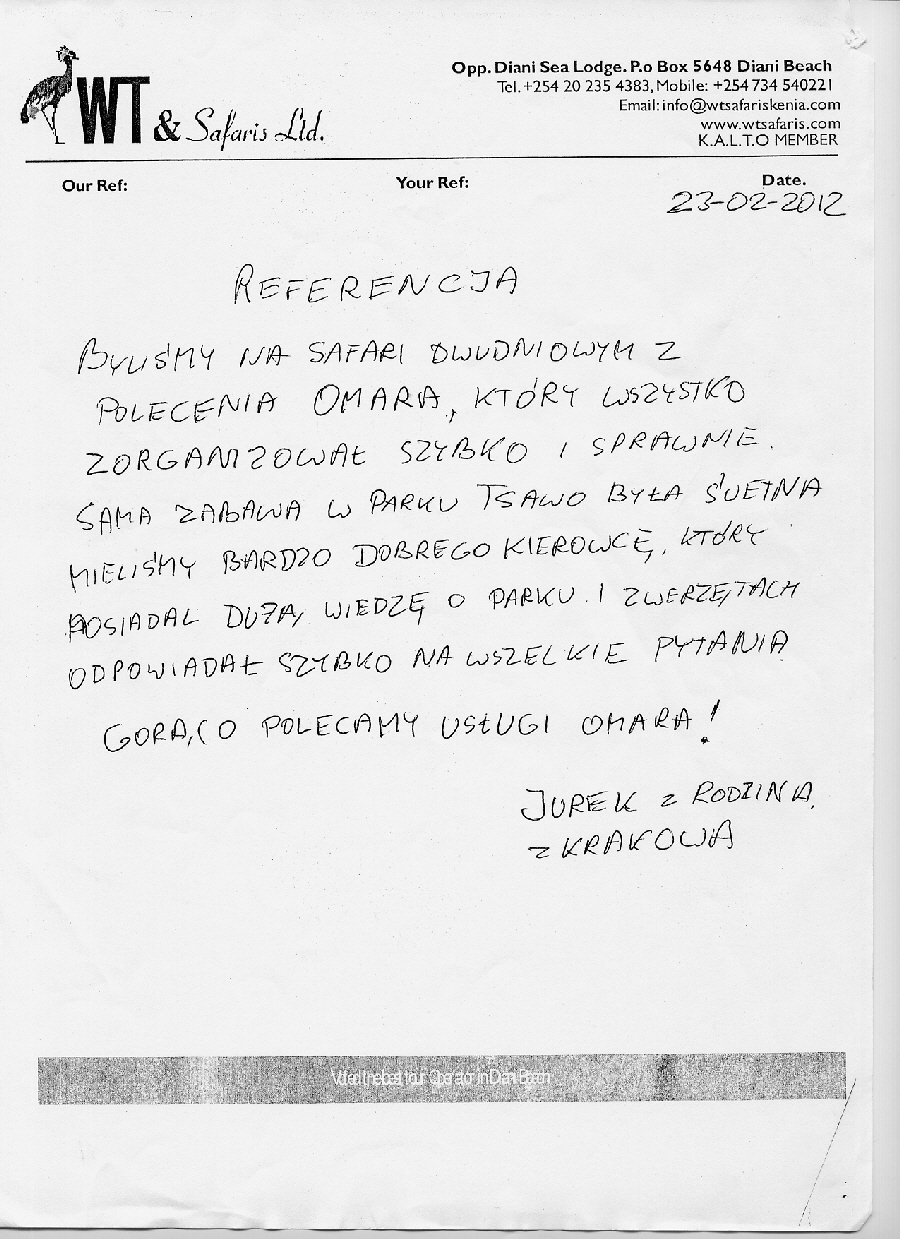 Opp. Diani Sea Lodge. P.o Box 5648 Diani Beach
Tel. +254 20 235 4383, Mobile: +254 734 540221
Email: info@wtsafariskenia.com
www.wtsafaris.com
K.A.L.T.O MEMBER
WT & Safaris Ltd.
Our Ref: Your Ref: Date.
23-02-2012
REFERENCJA
BYLIŚMY NA SAFARI DWUDNIOWYM Z
POLECENIA OMARA, KTÓRY WSZYSTKO
ZORGANIZOWAŁ SZYBKO I SPRAWNIE.
SAMA ZABAWA W PARKU TSAWO BYŁA ŚWETNA
MIELIŚMY BARDZO DOBREGO KIEROWCĘ, KTÓRY
POSIADAL DUŻĄ WIEDZĘ O PARKU I ZWERZĘTACH
ODPOWIADAŁ SZYBKO NA WSZELKIE PYTANIA
GORĄCO POLECAMY USŁUGI OMARA!
JUREK Z RODZINĄ
Z KRAKOWA